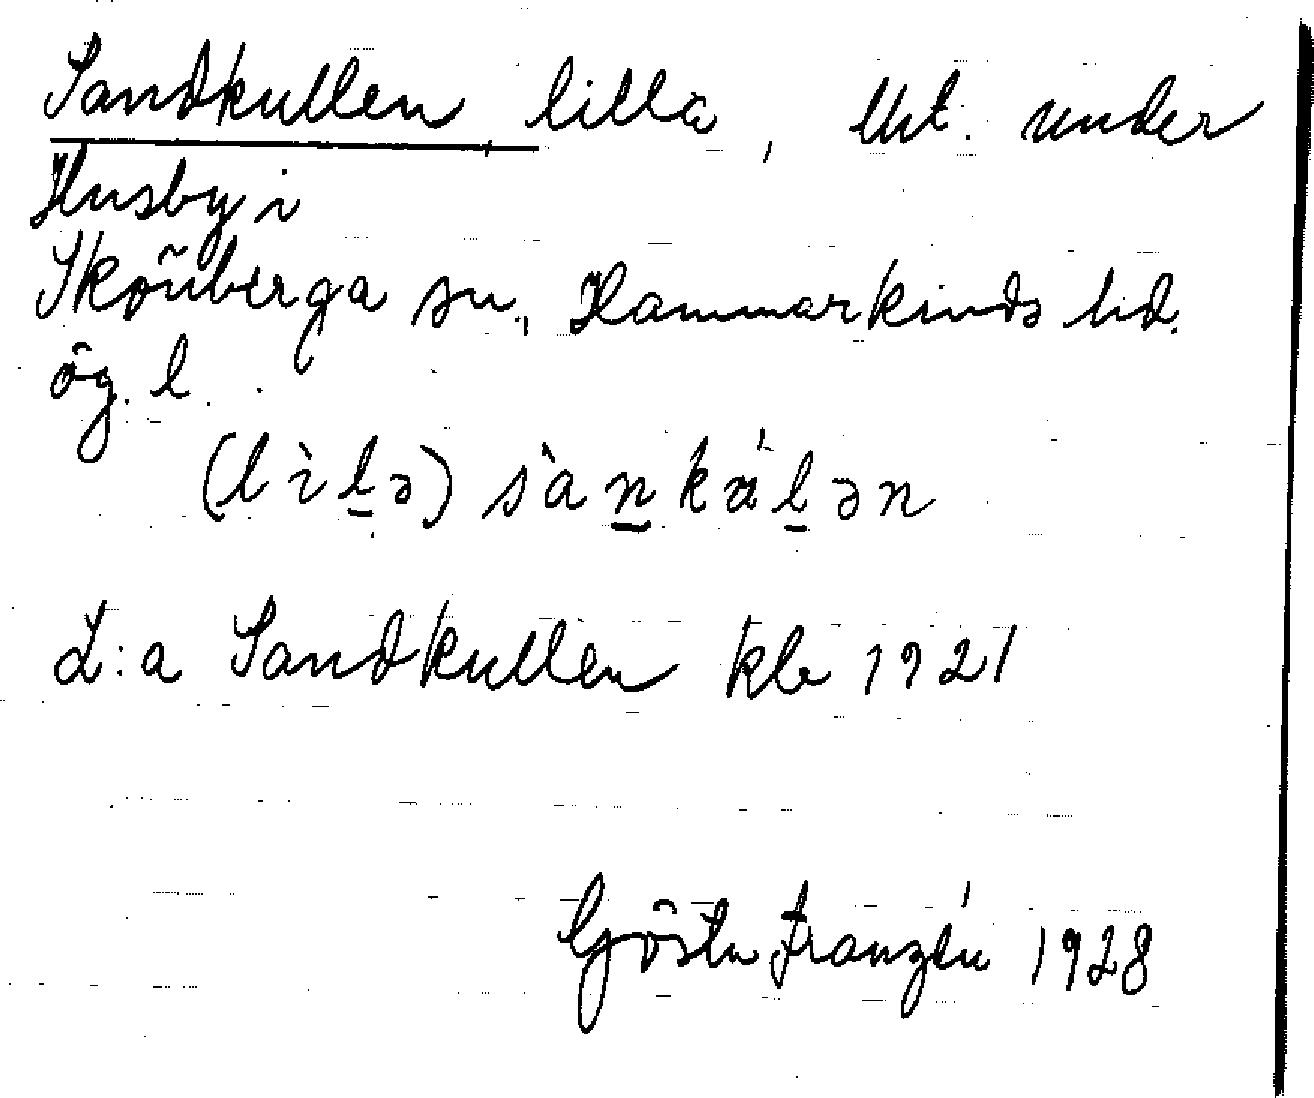 Sandkullen, lilla, lht. under
Husby i
Skönberga sn, Hammarkinds hd.
Ög. l.
(lìlə) sànkálən
L:a Sandkullen kle 1921
Gösta Franzén 1928